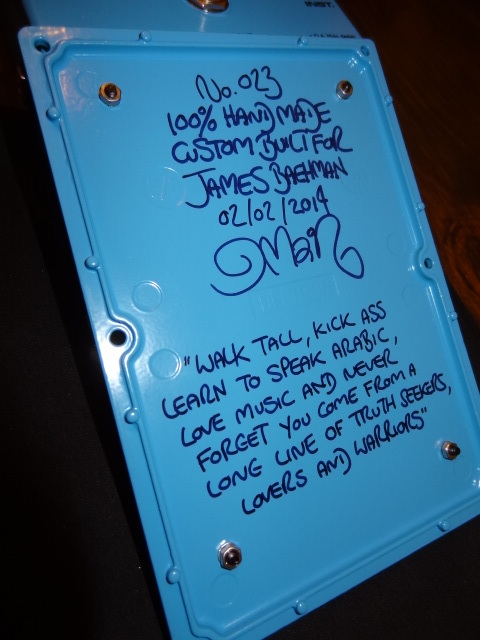 No. 023
100% HAND MADE
CUSTOM BUILT FOR
JAMES BAEHMAN
02/02/2014
"WALK TALL, KICK ASS
LEARN TO SPEAK ARABIC,
LOVE MUSIC AND NEVER
FORGET YOU COME FROM A
LONG LINE OF TRUTH SEEKERS,
LOVERS AND WARRIORS"